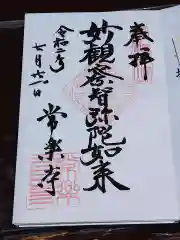 奉拝
妙観察智弥陀如来
常楽寺
令和二年
七月二八日